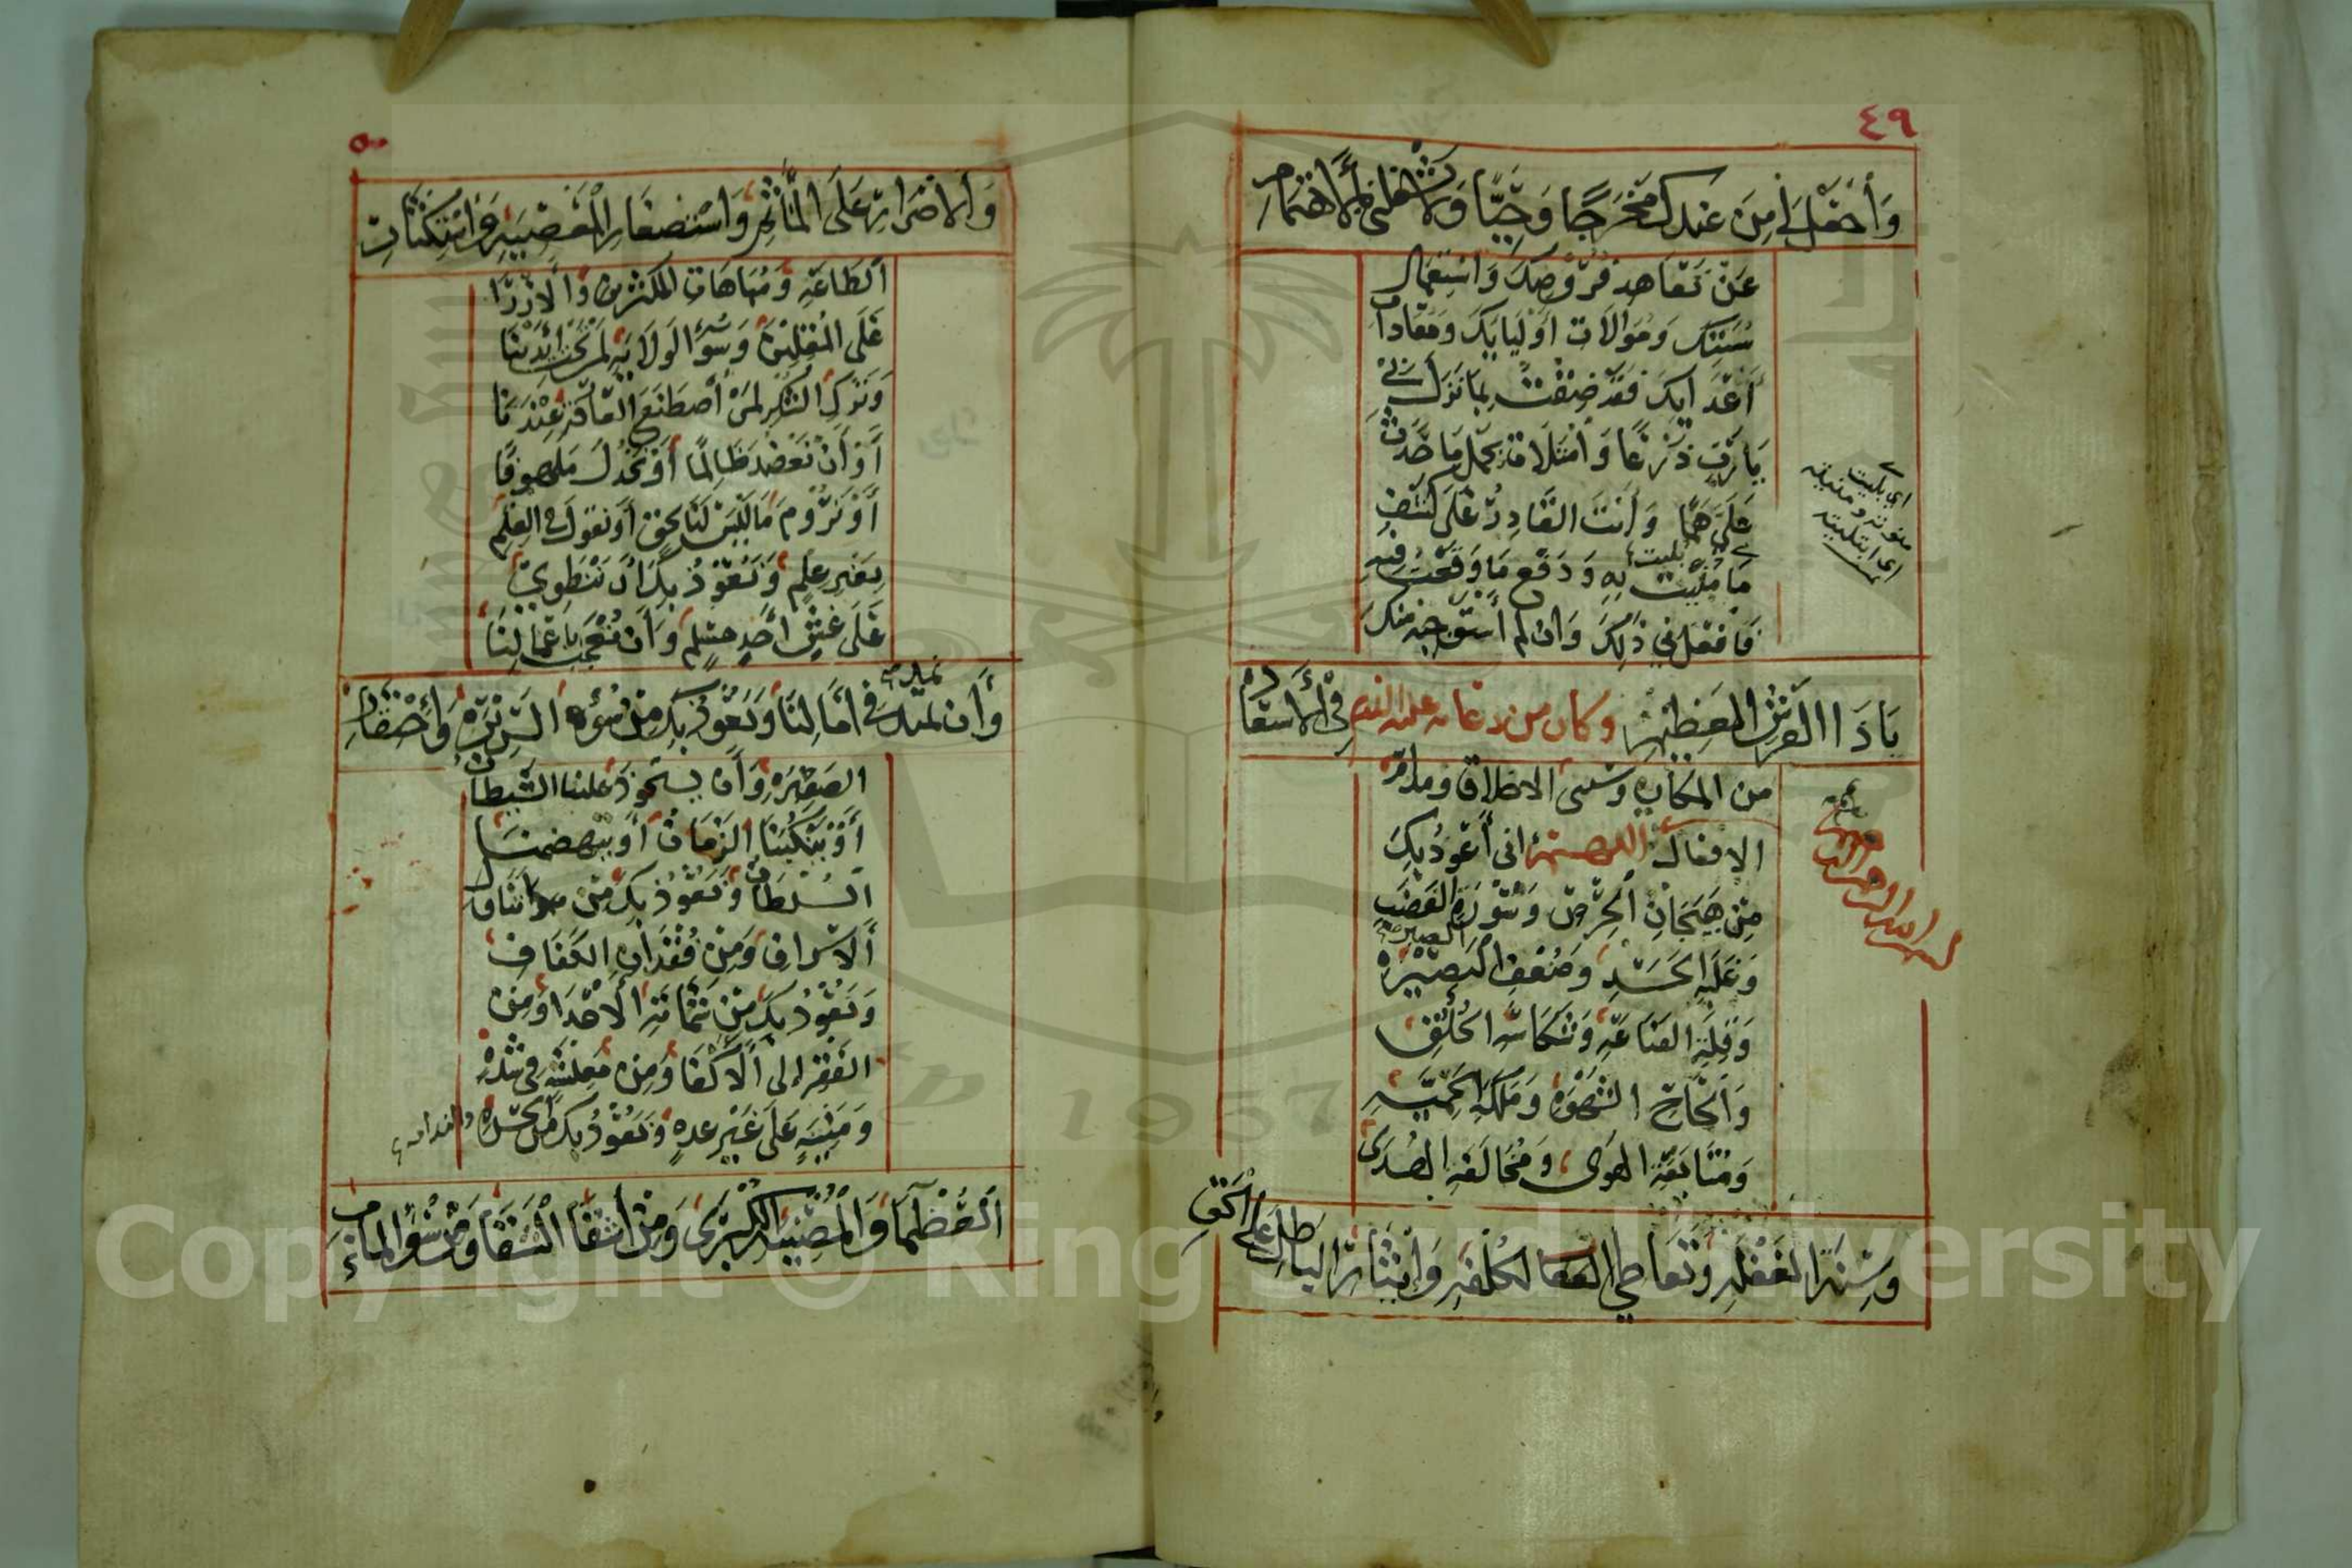 ٤٩
وَأجْعَلْ لِي مِنْ عِندِكَ مَخْرَجًا وَحِيًّا وَلَا تَشْغَلْنِي بِالْاهْتِمَامِ
عَنْ تَعَاهدِ فُرُوضِكَ وَاسْتِعْمَالِ
سُنَّتِكَ وَمُوَالَاتِ أَوْلِيَايِكَ وَمُعَادَاتِ
أَعْدَايِكَ فَقَدْ ضِقْتُ بِمَا نَزَلَ بِي
يَا رَبِّ ذَرْعًا وَأمْتَلَاتُ بِحَمْلِ مَا حَدَثَ
عَلَيَّ هَمًّا وَأَنْتَ القَادِرُ عَلَى كَشْفِ
مَا مُنِيْتُ بِهِ وَدَفْعِ مَا وَقَعْتُ فِيْهِ
بليت
فَافْعَلْ بِي ذَلِكَ وَانْ لم أسْتَوجِبهُ مِنْكَ
يَاذَا العَرْشِ العَظِيْمِ وكان من دعائه عليه السلام في الاستعاذة
من المكاره وسىء الاخلاق ومذامّ
الافعال اللهم إني أَعُوذُ بِكَ
مِنْ هَيَجَانِ الحِرْصِ وَسَوْرَةِ الغَضَبِ
وَغَلَبَةِ الحَسَدِ وَضُعْفِ البَصِيْرَة
الصبر
وَقِلَّةِ القَنَاعَةِ وَشَكَاسَةِ الخُلُقِ
وَإلْحَاحِ الشَّهْوَةِ وَمَلَكَةِ الحَمِيَّةِ
وَمُتَابَعَةِ الهَوى وَمُخَالَفَةِ الهُدَى
وَسِنَةِ الغَفْلَةِ وَتَعَاطِي الكُلْفَةِ وَإيْثَارِ البَاطِلِ عَلَى الحَقِّ
اي بليت
اي ابتليت
بسم الله الرحمن الرحيم
٥٠
وَالاصْرَارِ عَلَى المَأثَمِ وَاسْتِصغَارِ المَعْصِيَةِ وَاسْتِكْثَارِ
الطَاعَةِ وَمُبَاهَاتِ المكثرين وَالازْرَا
عَلَى المُقِلِّيْنَ وَسُوْءِ الوَلَايَةِ لِمَنْ تَحْتَ أيْدِيْنَا
وَتَرْكِ الشُّكْرِ لِمَنْ أصْطَنَعَ العَارِفَةَ عِنْدَنَا
أَوْ أَنْ نَعْضُدَ ظَالِمًا أَوْ نَخْذُلَ مَلهوفًا
أَوْ نَرُوْمَ مَا لَيْسَ لَنَا بِحَقٍّ أَوْ نَقُولَ فِي العِلْمِ
بِغَيْرِ عِلْمٍ وَنَعُوْذُ بِكَ أَنْ نَنْطَوِيَ
عَلَى غِشِّ أَحَدٍ مسلم وَأَنْ نُعْجَبَ بِأَعْمَالِنَا
وَأَن نمدّ في آمَالِنَا وَنَعُوذُ بِكَ مِنْ سُوْءِ السَّرِيْرَةِ وَأحْتِقَارِ
الصَغِيْرَةِ وَأَنْ يَستَحْوِذَ علينا الشَّيْطَانُ
أَوْ يَنْكُبَنَا الزَمَانُ أَوْ يَتَهَضَّمَنَا
السُلْطَانُ وَنَعُوْذُ بِكَ مِنْ تَنَاوُلِ
الاسْرَافِ وَمِنْ فُقْدَانِ الكَفَافِ
وَنَعُوْذُ بِكَ مِنْ شَمَاتَةِ الأَعْدَا وَمِنَ
الفَقْرِ إلى الأَكْفَا وَمِنْ مَعِيْشَةٍ فِي شِدَّةٍ
وَمَيْتَةٍ عَلَى غَيْرِ عدةٍ وَنَعُوْذُ بِكَ مِنَ الحَسْرَةِ
العُظْمَا وَالمُصِيْبَةِ الكُبْرَى وَمِنْ أشْقَا الشَقَا وَمِنْ سُوْءِ المَاٰبِ